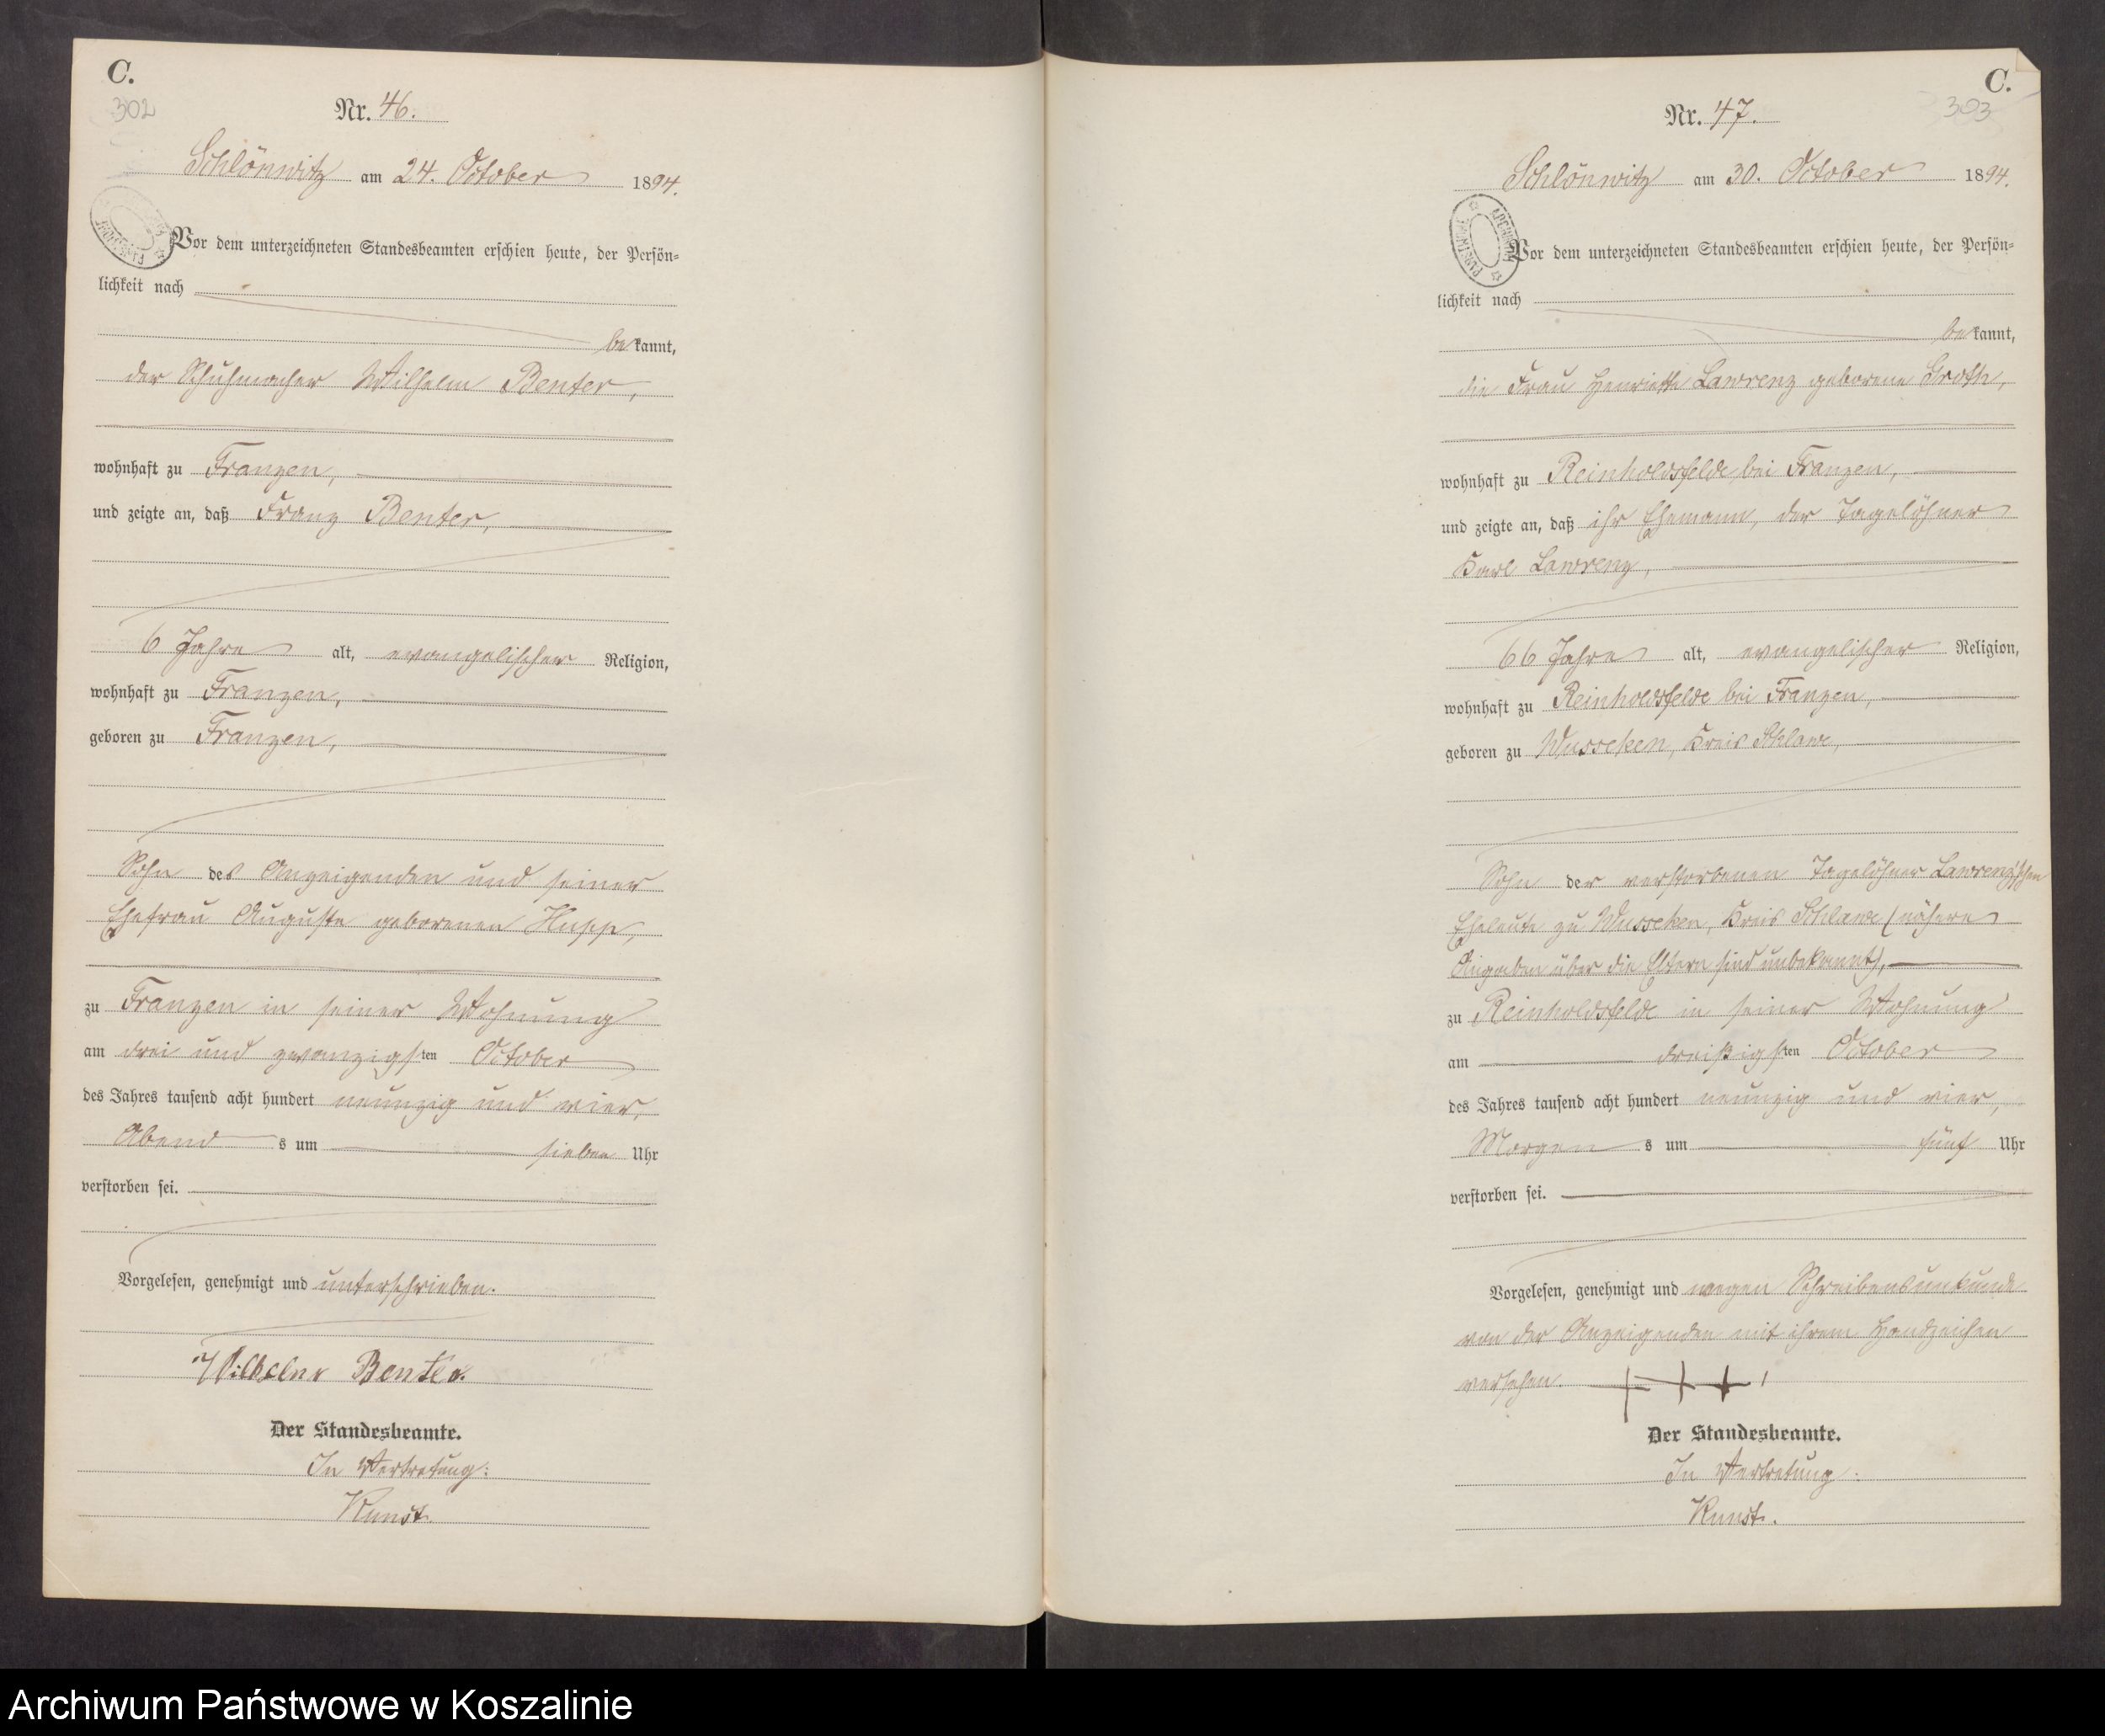 C.
302
Nr. 46.
Schlönwitz am 24. October 1894.
Vor dem unterzeichneten Standesbeamten erschien heute, der Persön=
lichkeit nach
bekannt,
der Schuhmacher Wilhelm Benter,
wohnhaft zu Franzen,
und zeigte an, daß Franz Benter,
6 Jahre alt, evangelischer Religion,
wohnhaft zu Franzen,
geboren zu Franzen,
Sohn des Anzeigenden und seiner
Ehefrau Auguste geborenen Hupp,
zu Franzen in seiner Wohnung
am drei und zwanzigsten October
des Jahres tausend acht hundert neunzig und vier,
Abends um sieben Uhr
verstorben sei.
Vorgelesen, genehmigt und unterschrieben.
Wilhelm Benter
Der Standesbeamte.
In Vertretung:
Kunst.
C.
303
Nr. 47.
Schlönwitz am 30. October 1894.
ARCHIWUM PAŃSTWOWE
Vor dem unterzeichneten Standesbeamten erschien heute, der Persön=
lichkeit nach
bekannt,
die Frau Henriette Lawrenz geborene Groth,
wohnhaft zu Reinholdsfelde bei Franzen,
und zeigte an, daß ihr Ehemann, der Tagelöhner
Karl Lawrenz,
66 Jahre alt, evangelischer Religion,
wohnhaft zu Reinholdsfelde bei Franzen,
geboren zu Wusseken, Kreis Schlawe,
Sohn der verstorbenen Tagelöhner Lawrenz'schen
Eheleute zu Wusseken, Kreis Schlawe (nähere
Angaben über die Eltern sind unbekannt),
zu Reinholdsfelde in seiner Wohnung
am dreißigsten October
des Jahres tausend acht hundert neunzig und vier,
Morgens um fünf Uhr
verstorben sei.
Vorgelesen, genehmigt und wegen Schreibensunkunde
von der Anzeigenden mit ihrem Handzeichen
versehen. +++
Der Standesbeamte.
In Vertretung:
Kunst.
Archiwum Państwowe w Koszalinie